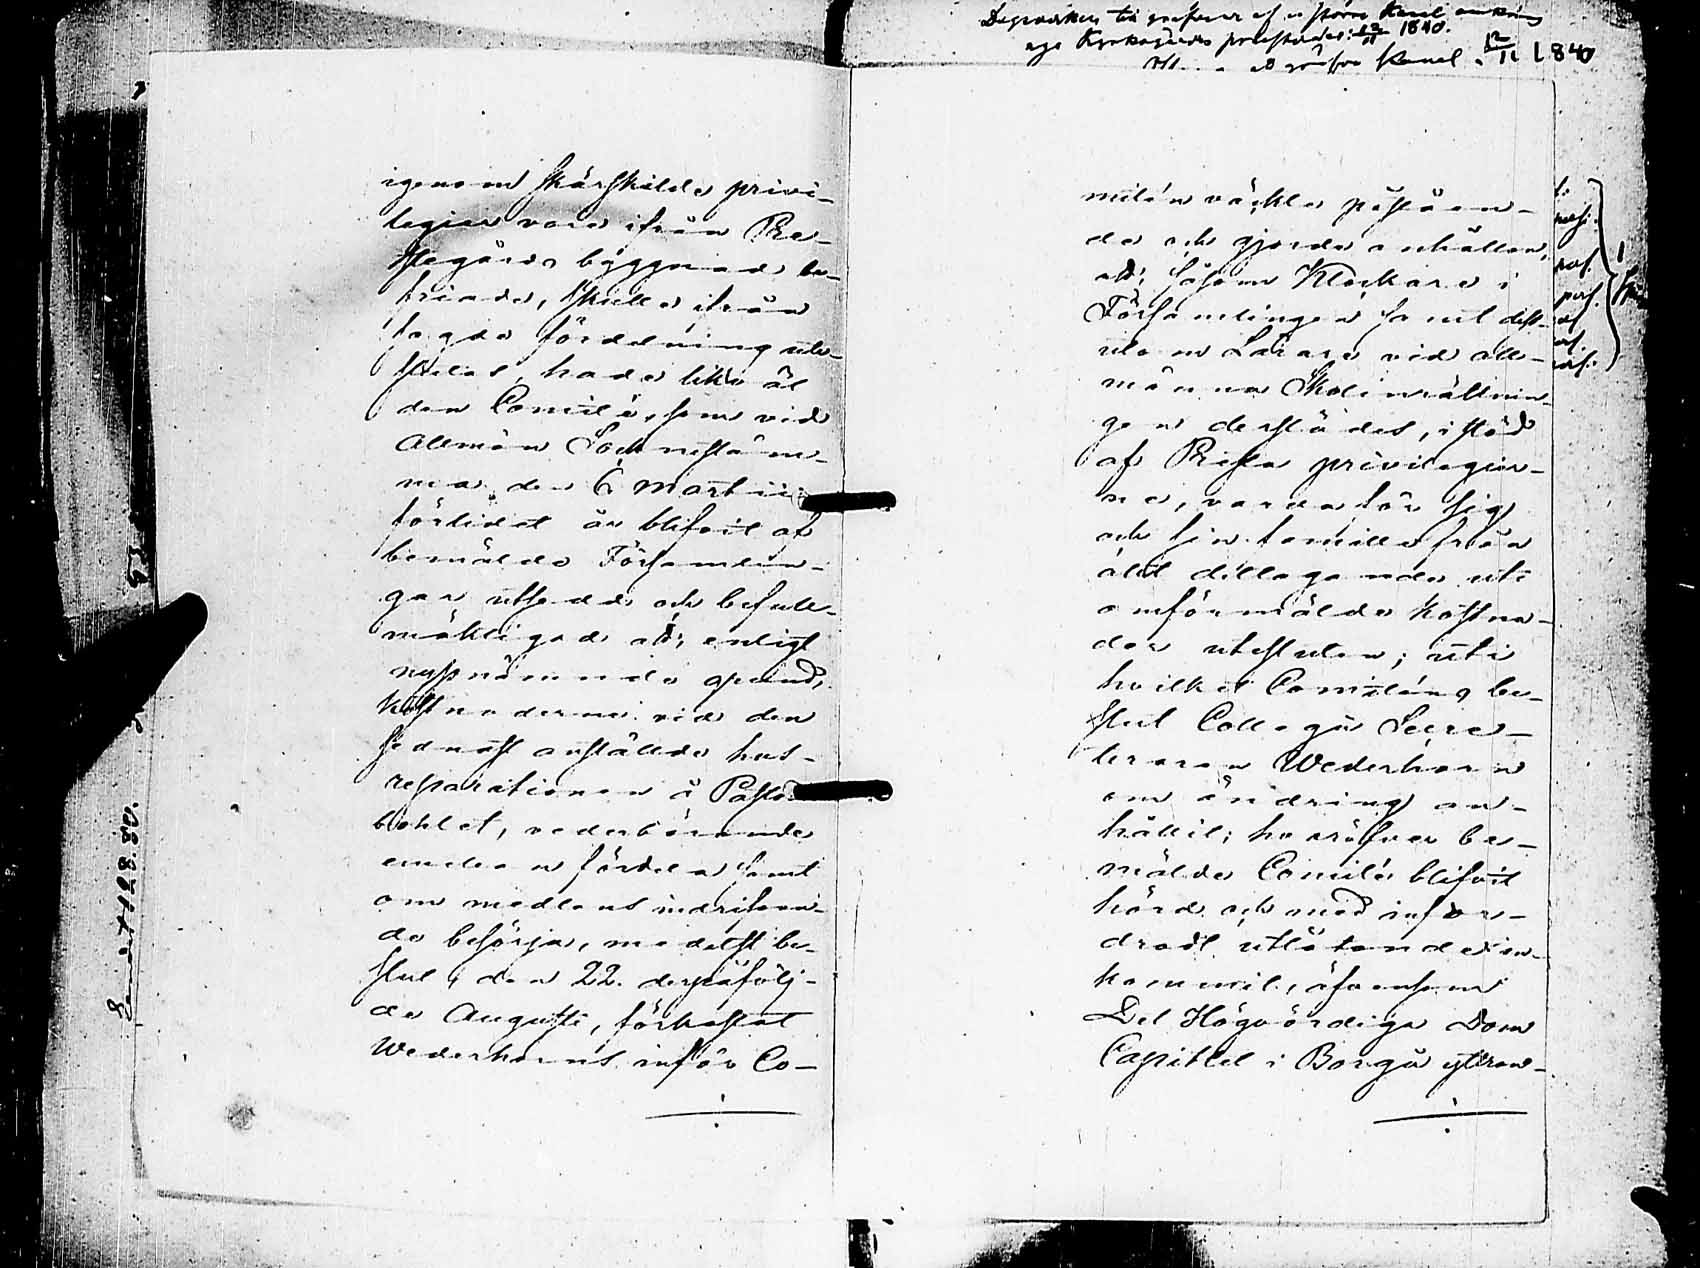 igenom särskilde privi-
legier vore ifrån Pre-
stegårds byggnad be-
friade, skulle ifrån
sagde fördelning ute-
slutas, hade likväl
den Comité, som vid
allmän Socknestäm-
ma den 6 Martii
förlidet år blifvit af
bemälde Församlin-
gar utsedd och befull-
mäktigad att, enligt
nyssnämnde grund,
kostnaderne vid den
sednast anställde hus-
reparationen å Pastors
bohlet, vederbörande
emellan fördela samt
om medlens indrifvan-
de besörja, medelst be-
slut den 22. derpåfölj-
de Augusti, förkastat
Wederhorns inför Co-
mitén väckte påståen-
de och gjorde anhållan,
att, såsom Klockare i
Församlingen samt dess-
utom Lärare vid all-
männa Skolinrättnin-
gen derstädes, i stöd
af Presta privilegier-
ne, varda för sig
och sin familie från
allt deltagande uti
omförmälde kostna-
der utesluten; uti
hvilket Comiténs be-
slut Collegii Secre-
teraren Wederhorn
om ändring an-
hållit; hvaröfver be-
mälde Comité blifvit
hörd och med infor-
dradt utlåtande in-
kommit, äfvensom
Det Högvördiga Dom
Capitlet i Borgå yttran-
12/11 1840